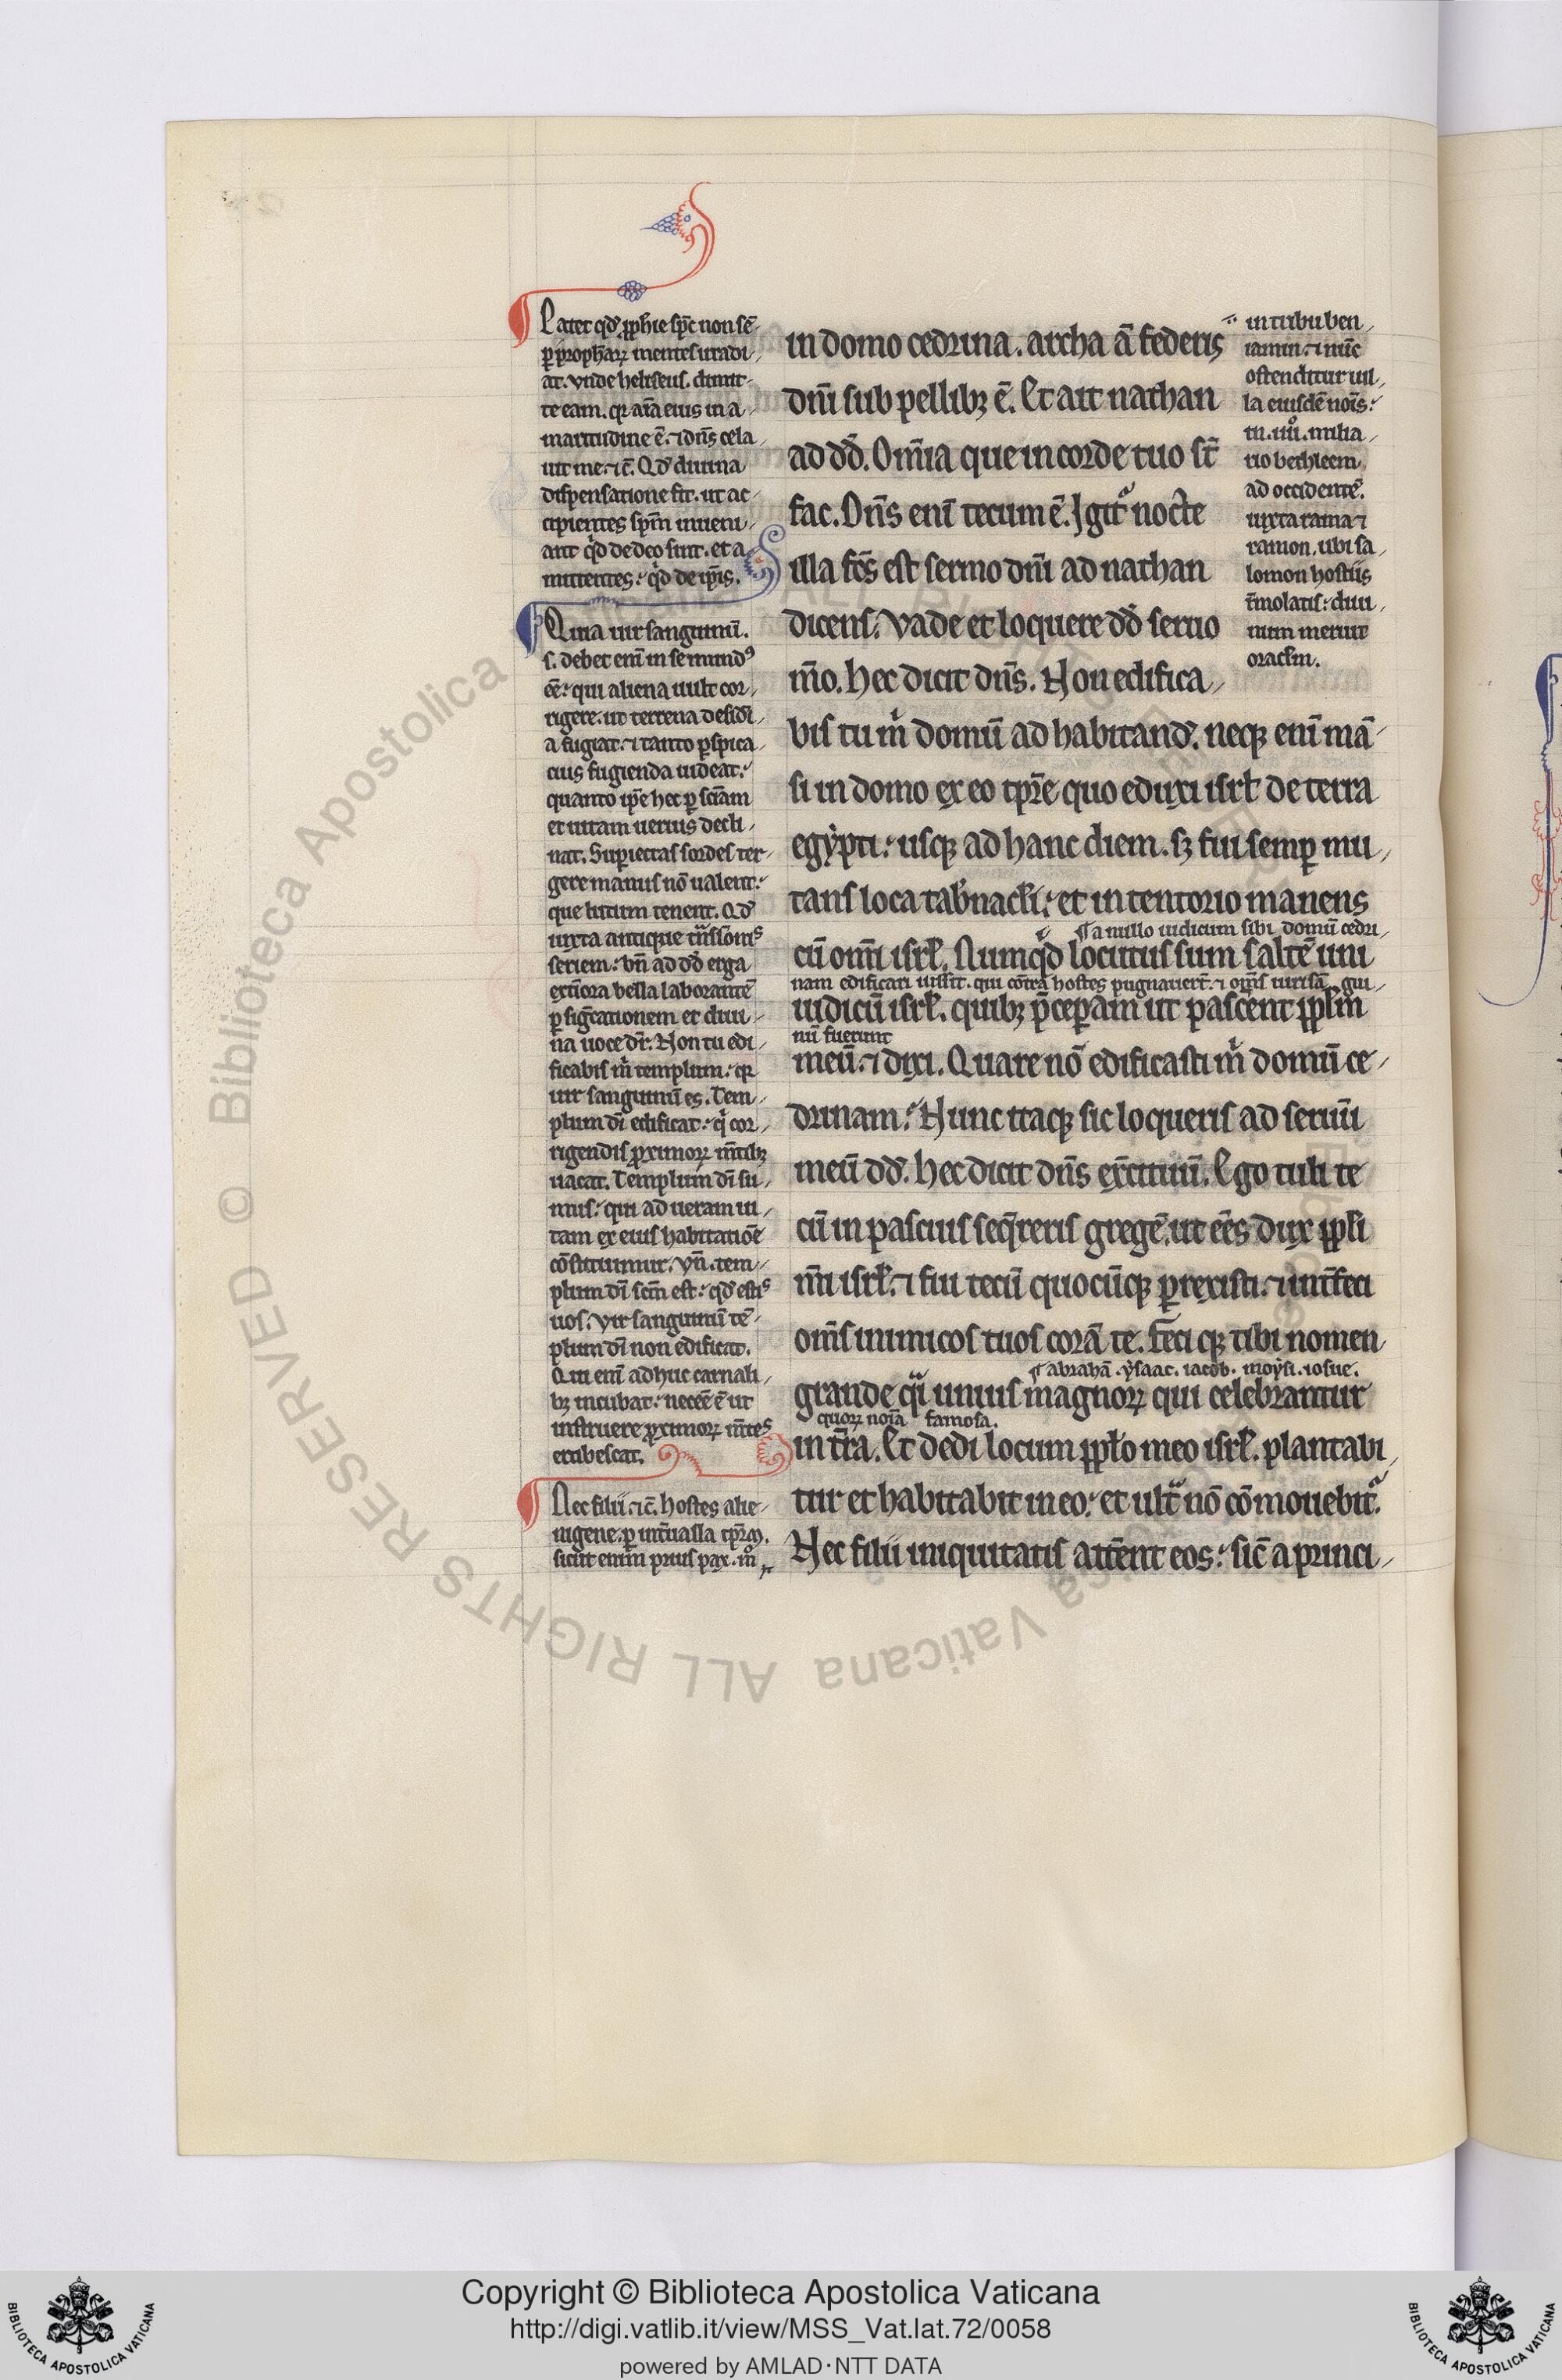 Patet qd̓ ꝓph̓ie sp̄c non sē
ꝑ prophaꝝ mentes irradi
at. Vnde heliseus. dimit
te eam. qꝛ aīa eius in a
maritudine ē. ⁊ dn̄s cela
uit me. ⁊ c̄. Qd̓ diuina
dispensatione fit. ut ac
cipientes sp̄m inueni
ant qͥd de deo sint. et a
mittentes: qͥd de ip̄is.
Quia uir sanguinū.
s. debet eni̅ in se mundꝰ
eē: qui aliena uult cor
rigere. ut terrena desidi
a fugiat. ⁊ tanto ꝑspica
cius fugienda uideat:
quanto ip̄e hec ꝑ sciam
et uitam uerius decli
nat. Supiectas sordes ter
gere manus nō ualent:
que lutum tenent. Qd̓
iuxta antique
seriem: bn̄ ad dd̓ erga
exͭiora bella laborantē
ꝑ sigͥcationem et diui
na uoce dr̄. Non tu edi
ficabis m̄ templum: qꝛ
uir sanguinū es. Tem
plum dī edificat: qͥ cor
rigendis ꝓximoꝝ m̄tibꝫ
uacat. Templum dī su
mus: qui ad ueram ui
tam ex eius habitatiōe
cōstituimur. Vn̄. tem
plum dī scm̄ est: qd̓ estiˢ
uos. Vir sanguinū tē
plum dī non edificat.
Qui eni̅ adhuc carnali
bꝫ incubat: neceē ē ut
instruere ꝓximoꝝ m̄teˢ
erubescat.
Nec filii. ⁊ c̄. hostes alie
nigene. ꝑ int̄ualla
sicut enim prius pax. mͦ
in domo cedrina. archa ā federis
dn̄i sub pellibꝫ ē. Et ait nathan
ad dd̓. Om̄ia que in corde tuo st̄
fac. Dn̄s eni̅ tecum ē. Igitͣ nocte
illa fc̄s est sermo dn̄i ad nathan
dicens. Vade et loquere dd̓ seruo
m̄o. hec dicit dn̄s. Non edifica
bis tu m̄ domū ad habitand̓. neqꝫ eni̅ mā
si in domo ex eo tp̄re quo eduxi isrl̓ de terra
egẏpti: usqꝫ ad hanc diem. sꝫ fui semꝑ mu
tans loca tab̓nacli: et in tentorio manens
¶ a nullo iudicum sibi domū cedri
cū om̄i isrl̓. Numqͥd locutus sum saltē uni
nam edificari iussit. qui cōtra hostes pugnauer̄t. ⁊ om̄s iurisā gui
iudicū isrl̓. quibꝫ p̄ceperam ut pascent ppl̄m
nū fuerunt
meū. ⁊ dixi. Quare nō edificasti m̄ domū ce
drinam: Nunc itaqꝫ sic loqueris ad seruū
meū dd̓. hec dicit dn̄s ex̄cituū. Ego tuli te
cū in pascuis seqͥreris gregē. ut eēs dux ppl̄i
m̄i isrl̓. ⁊ fui tecū quocūqꝫ ꝑrexisti. ⁊ int̄feci
om̄s inimicos tuos corā te. feci qꝫ tibi nomen
¶ abrahā. ẏsaac. iacob. moẏsi. iosue.
grande qͣi unius magnoꝝ qui celebrantur
quoꝝ noīa famosa.
in t̄ra. Et dedi locum ppl̄o meo isrl̓. plantabi
tur et habitabit in eo: et ultͣ nō cōmouebitͣ.
Nec filii iniquitatis attēnt eos: sic̄ a princi
in tribu ben
iamin. ⁊ nūc
ostenditur uil
la eiusdē noīs:
in. iiiiͦ. milia
rio bethleem
ad occidentē.
iuxta rama ⁊
ramon. ubi sa
lomon hostiis
īmolatis: diui
num meruit
oraclm.
Copyright © Biblioteca Apostolica Vaticana
http://digi.vatlib.it/view/MSS_Vat.lat.72/0058
powered by AMLAD·NTT DATA
BIBLIOTECA APOSTOLICA VATICANA
BIBLIOTECA APOSTOLICA VATICANA
Biblioteca Apostolica Vaticana ALL RIGHTS RESERVED ©